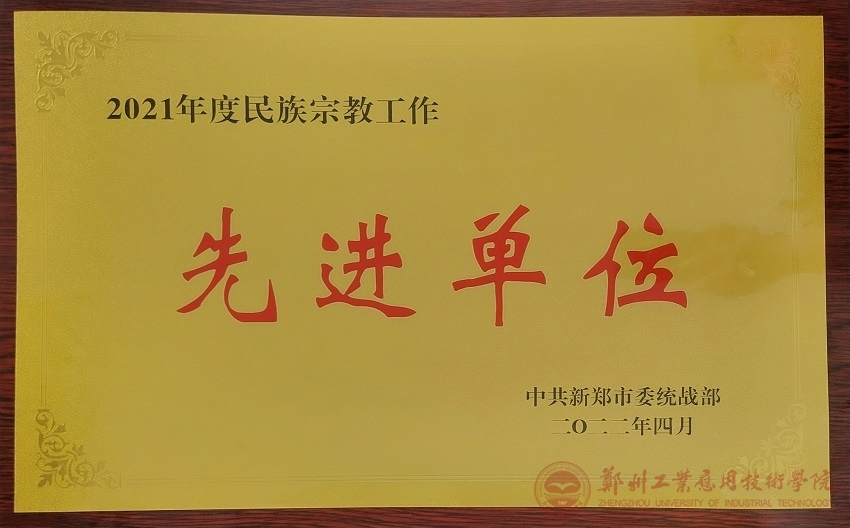 2021年度民族宗教工作
先进单位
中共新郑市委统战部
二O二二年四月
鄭州工業應用技術學院
ZHENGZHOU UNIVERSITY OF INDUSTRIAL TECHNOLOGY